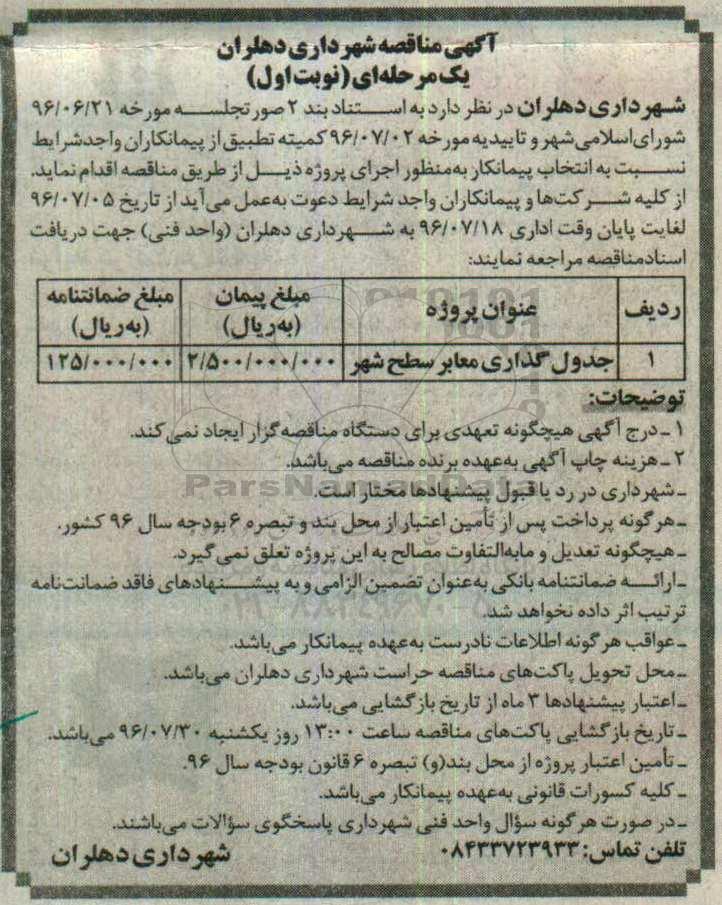 آگهی مناقصه شهرداری دهلران
یک مرحله‌ای (نوبت اول)
شهرداری دهلران در نظر دارد به استناد بند ۲ صورتجلسه مورخه ۹۶/۰۶/۲۱
شورای اسلامی شهر و تاییدیه مورخه ۹۶/۰۷/۰۲ کمیته تطبیق از پیمانکاران واجد شرایط
نسبت به انتخاب پیمانکار به‌منظور اجرای پروژه ذیل از طریق مناقصه اقدام نماید.
از کلیه شرکت‌ها و پیمانکاران واجد شرایط دعوت به‌عمل می‌آید از تاریخ ۹۶/۰۷/۰۵
لغایت پایان وقت اداری ۹۶/۰۷/۱۸ به شهرداری دهلران (واحد فنی) جهت دریافت
اسناد مناقصه مراجعه نمایند:
ردیف عنوان پروژه مبلغ پیمان (به ریال) مبلغ ضمانتنامه (به ریال)
۱ جدول گذاری معابر سطح شهر ۲/۵۰۰/۰۰۰/۰۰۰ ۱۲۵/۰۰۰/۰۰۰
توضیحات:
۱ ـ درج آگهی هیچگونه تعهدی برای دستگاه مناقصه گزار ایجاد نمی کند.
۲ ـ هزینه چاپ آگهی به‌عهده برنده مناقصه می‌باشد.
ParsNamadData
ـ شهرداری در رد یا قبول پیشنهادها مختار است.
ـ هر گونه پرداخت پس از تأمین اعتبار از محل بند و تبصره ۶ بودجه سال ۹۶ کشور.
ـ هیچگونه تعدیل و مابه‌التفاوت مصالح به این پروژه تعلق نمی گیرد.
ـ ارائه ضمانتنامه بانکی به‌عنوان تضمین الزامی و به پیشنهادهای فاقد ضمانت‌نامه
ترتیب اثر داده نخواهد شد.
ـ عواقب هر گونه اطلاعات نادرست به‌عهده پیمانکار می‌باشد.
ـ محل تحویل پاکت‌های مناقصه حراست شهرداری دهلران می‌باشد.
ـ اعتبار پیشنهادها ۳ ماه از تاریخ بازگشایی می‌باشد.
ـ تاریخ بازگشایی پاکت‌های مناقصه ساعت ۱۳:۰۰ روز یکشنبه ۹۶/۰۷/۳۰ می‌باشد.
ـ تأمین اعتبار پروژه از محل بند(و) تبصره ۶ قانون بودجه سال ۹۶.
ـ کلیه کسورات قانونی به‌عهده پیمانکار می‌باشد.
ـ در صورت هر گونه سؤال واحد فنی شهرداری پاسخگوی سؤالات می‌باشند.
تلفن تماس: ۰۸۴۳۳۷۲۳۹۳۳
شهرداری دهلران